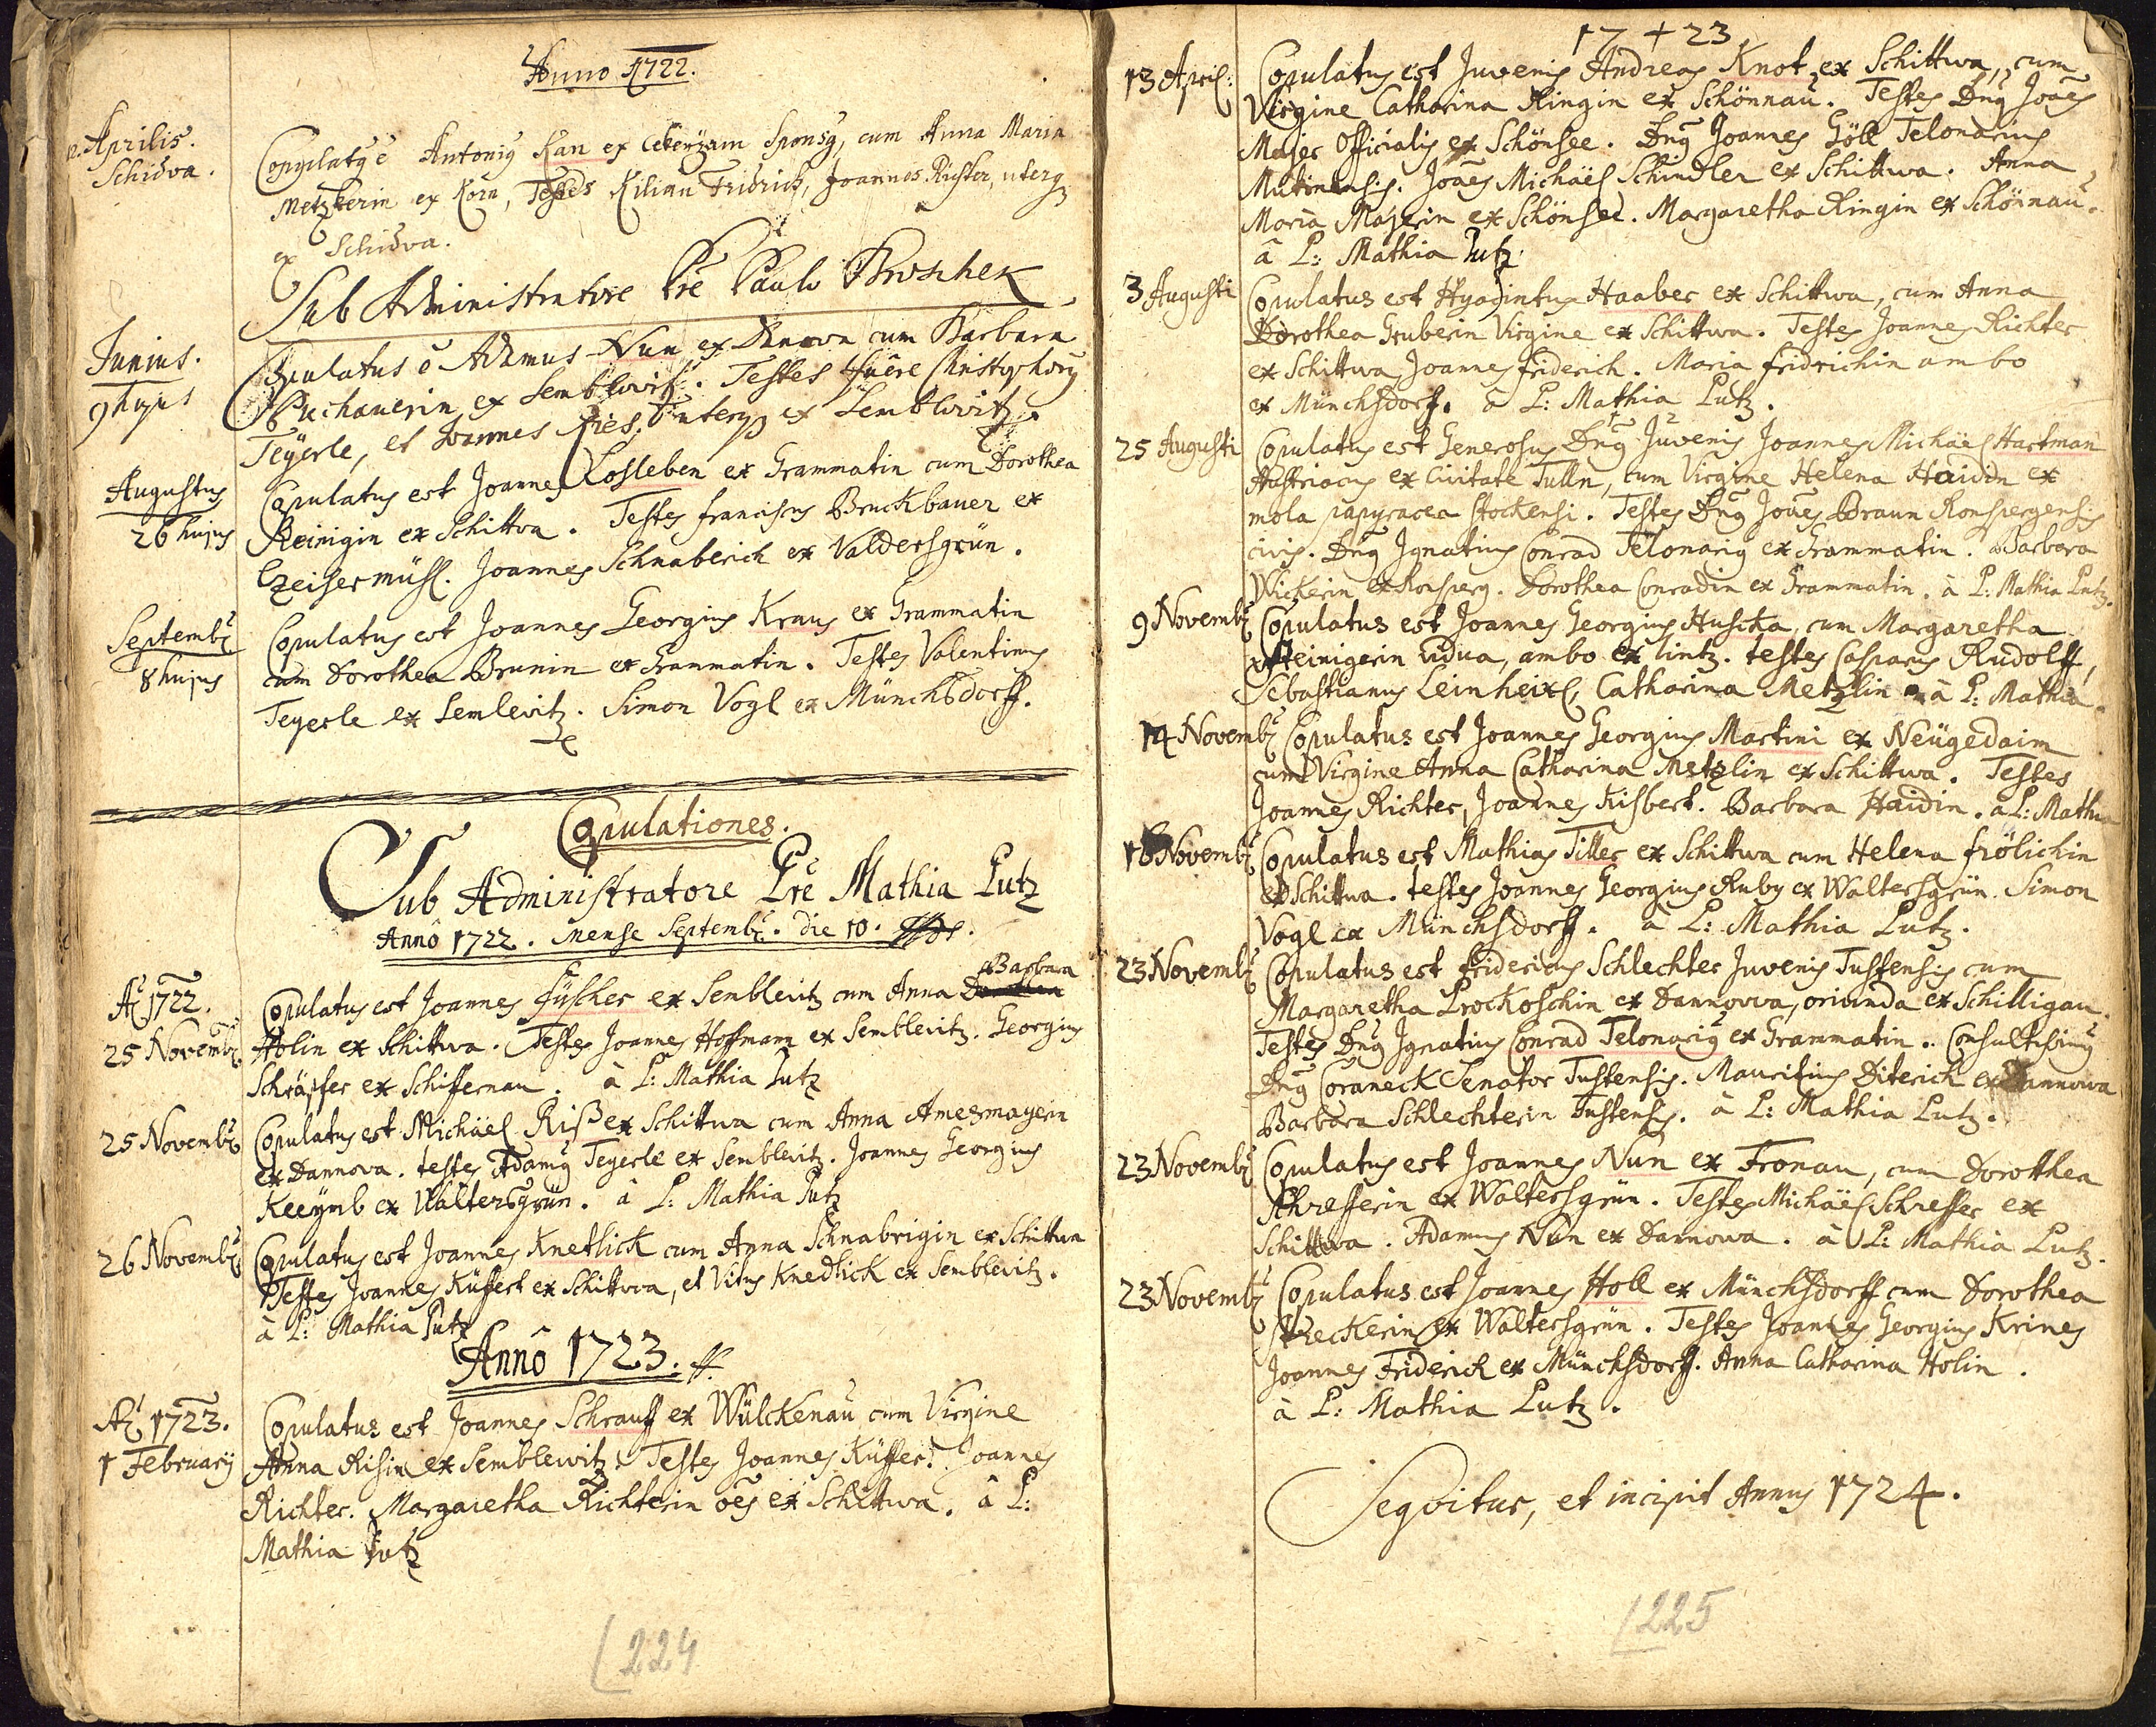 Anno 1722.
12. Aprilis.
Schidva.
Copulatq̃ ẽ Antoniq̃ Kan ex Sponsq̃, cum Anna Maria
Metzkerin ex Korn, Testes Kilian Fridrich, Joannes Richter, uterq̃
ex Schidva.
Sub Administratore Prẽ Paulo Broschek
Junius.
9 hujus
Copulatus ẽ Adamus Nun ex Danava cum Barbara
Puchauerin ex Semblovitz. Testes fuêre Christophorq̃
Teÿerle, et Joannes Ries, uterq̃ ex Semblovitz.
Augustus
26 hujus
Copulatus est Joannes Losleben ex Grammatin cum Dorothea
Reinigin ex Schittva. Testes franciscus Bruckbauer ex
Czeisermühl. Joannes Schnaberich ex Valdersgrün.
Septemb̃
8 hujus
Copulatus est Joannes Georgius Kraus ex Grammatin
cum Dorothea Brunin ex Grammatin. Testes Valentinus
Teyerle ex Semlevitz. Simon Vogl ex Münchsdorff.
Copulationes.
Sub Administratore Prẽ Mathia Lutz
Annô 1722. mense Septemb̃. die 10.
A̅ 1722.
25 Novemb̃
Barbara
Copulatus est Joannes Fÿscher ex Semblevitz cum Anna Dorothea
Holin ex Schittwa. Testes Joannes Hoffmann ex Semblevitz. Georgius
Schräpfer ex Schiffernau. à P: Mathia Lutz
25 Novemb̃
Copulatus est Michäel Riß ex Schittwa cum Anna Amesmayerin
ex Dannova. testes Adamq̃ Teyerle ex Semblevitz. Joannes Georgius
Keeÿmb ex Waltersgrün. à P: Mathia Lutz
26 Novemb̃
Copulatus est Joannes Knetlick cum Anna Schnabrigin ex Schittwa
Testes Joannes Küffert ex Schittwa, et Vitus Knedlick ex Semblevitz.
à P: Mathia Lutz
Annô 1723.
A̅ 1723.
1 Februarij
Copulatus est Joannes Schrauff ex Wülckenau cum Virgine
Anna Risin ex Semblewitz. Testes Joannes Küffer. Joannes
Richter. Margaretha Richterin oẽs ex Schittwa. à P:
Mathia Lutz
224
17 + 23
13 April:
Copulatus est Juvenis Andreas Knot ex Schittwa, cum
Virgine Catharina Ringin ex Schönnau. Testes Dnq̃ Joães
Majer Officialis ex Schönsee. Dnq̃ Joannes Göll Telonarius
Mutinensis. Joães Michäel Schindler ex Schittwa. Anna
Maria Majerin ex Schönsee. Margaretha Ringin ex Schönnau.
à P: Mathia Lutz.
3 Augusti
Copulatus est Hyacintus Haaber ex Schittwa, cum Anna
Dorothea Gruberin Virgine ex Schittwa. Testes Joannes Richter
ex Schittwa, Joannes friderich. Maria fridrichin ambo
ex Münchsdorf. à P: Mathia Lutz.
25 Augusti
Copulatus est Generosus Dnq̃ Juvenis Joannes Michäel Hartman
Austriacus ex Civitate Tulln, cum Virgine Helena Haidin ex
mola papyracea stockensi. Testes Dnq̃ Joães Braun Ronspergensis
civis. Dnq̃ Ignatius Conrad Telonariq̃ ex Grammatin. Barbara
Wickerin ex Ronsperg. Dorothea Conradin ex Grammatin. à P: Mathia Lutz.
9 Novemb̃
Copulatus est Joannes Georgius Huscka, cum Margaretha
Steinigerin vidua, ambo ex lintz. testes Casparus Rudolff,
Sebastianus Leinheixl, Catharina Metzlin à P: Mathia.
14 Novemb̃
Copulatus est Joannes Georgius Martini ex Neügedaim
cum Virgine Anna Catharina Metzlin ex Schittwa. Testes
Joannes Richter, Joannes Kisbert. Barbara Haidin. à P: Mathia
16 Novemb̃
Copulatus est Mathias Tiller ex Schittwa cum Helena frölichin
ex Schittwa. testes Joannes Georgius Ruby ex Waltersgrün. Simon
Vogl ex Münchsdorff. à P: Mathia Lutz.
23 Novemb̃
Copulatus est fridericus Schlechter Juvenis Tustensis cum
Margaretha Prockoschin ex Dannowa, oriunda ex Schilligau.
Testes Dnq̃ Ignatius Conrad Telonariq̃ ex Grammatin. Consultissimq̃
Dnq̃ Coraneck Senator Tustensis. Mauritius Diterich ex Dannowa
Barbara Schlechterin Tustensis. à P: Mathia Lutz.
23 Novemb̃
Copulatus est Joannes Nun ex Fronau, cum Dorothea
Schrefferin ex Waltersgrün. Testes Michäel Schreffer ex
Schittwa. Adamus Nun ex Dannowa. à P: Mathia Lutz.
23 Novemb̃
Copulatus est Joannes Holl ex Münchsdorff cum Dorothea
Streckerin ex Waltersgrün. Testes Joannes Georgius Krines
Joannes Friderich ex Münchsdorff. Anna Catharina Holin.
à P: Mathia Lutz.
Seqvitur, et incipit Annus 1724.
225